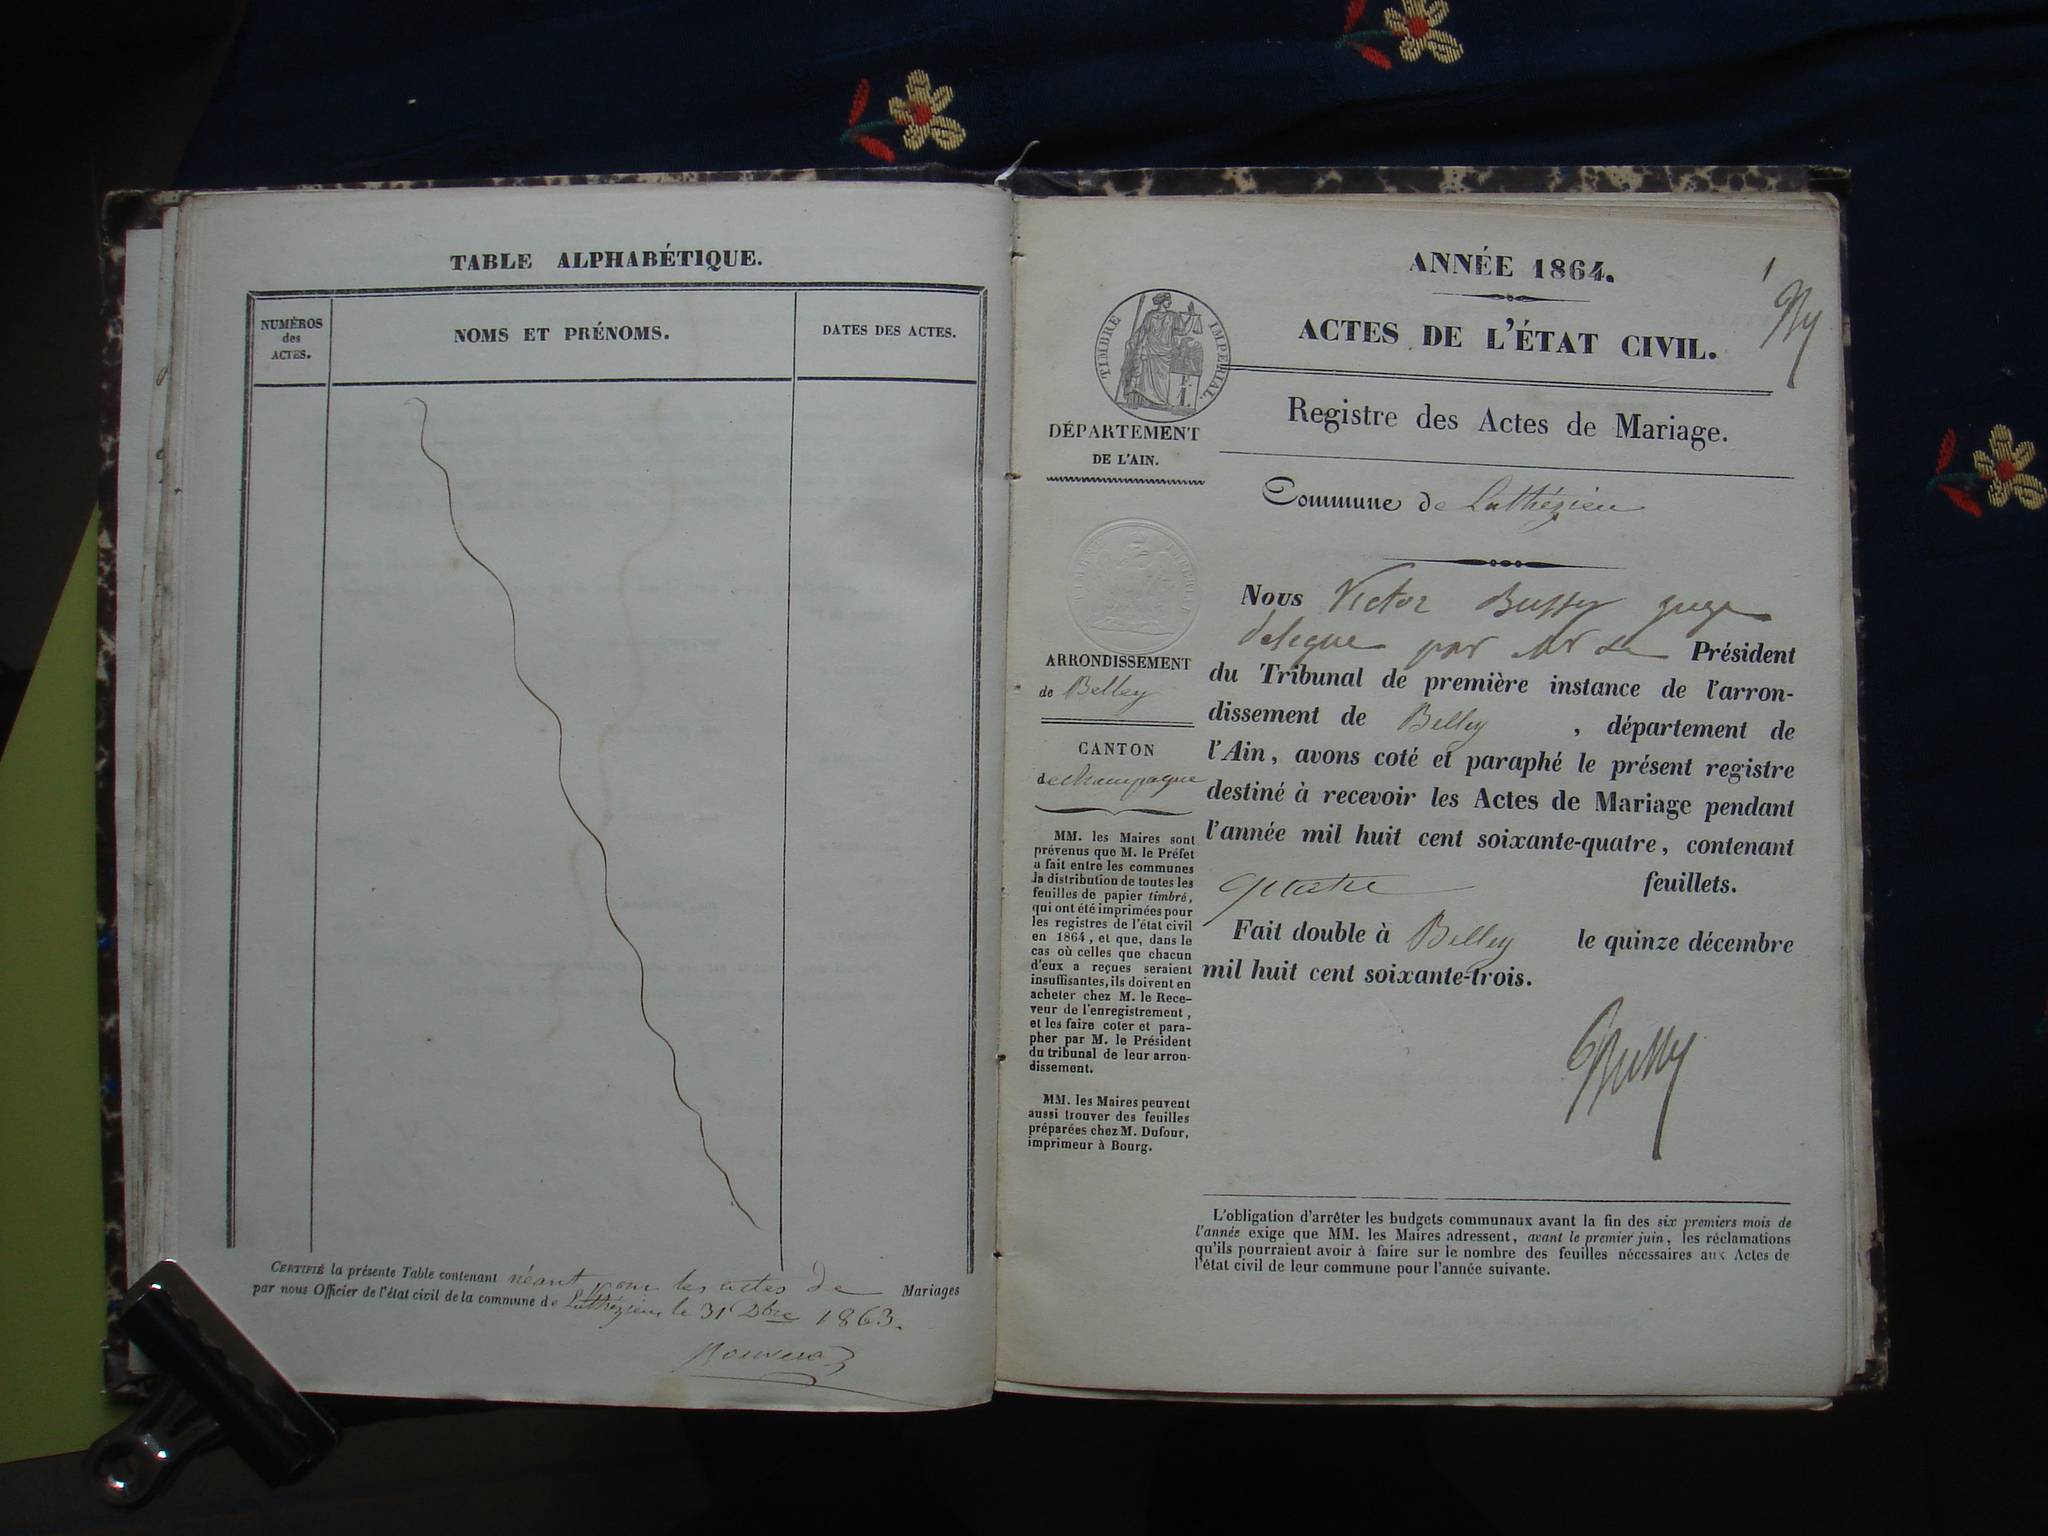 TABLE ALPHABÉTIQUE.
NUMÉROS
des
ACTES.
NOMS ET PRÉNOMS.
DATES DES ACTES.
CERTIFIÉ la présente Table contenant néant pour les actes de Mariages
par nous Officier de l'état civil de la commune de Luthézieu le 31 Dbre 1863.
ANNÉE 1864.
1
ACTES DE L'ÉTAT CIVIL.
TIMBRE IMPÉRIAL.
Registre des Actes de Mariage.
DÉPARTEMENT
DE L'AIN.
Commune de Luthézieu
ARRONDISSEMENT
de Belley
CANTON
de Champagne
MM. les Maires sont
prévenus que M. le Préfet
a fait entre les communes
la distribution de toutes les
feuilles de papier timbré,
qui ont été imprimées pour
les registres de l'état civil
en 1864, et que, dans le
cas où celles que chacun
d'eux a reçues seraient
insuffisantes, ils doivent en
acheter chez M. le Rece-
veur de l'enregistrement,
et les faire coter et para-
pher par M. le Président
du tribunal de leur arron-
dissement.
MM. les Maires peuvent
aussi trouver des feuilles
préparées chez M. Dufour,
imprimeur à Bourg.
Nous Victor Bussy juge
delegue par Mr le Président
du Tribunal de première instance de l'arron-
dissement de Belley , département de
l'Ain, avons coté et paraphé le présent registre
destiné à recevoir les Actes de Mariage pendant
l'année mil huit cent soixante-quatre, contenant
quatre feuillets.
Fait double à Belley le quinze décembre
mil huit cent soixante-trois.
Bussy
L'obligation d'arrêter les budgets communaux avant la fin des six premiers mois de
l'année exige que MM. les Maires adressent, avant le premier juin, les réclamations
qu'ils pourraient avoir à faire sur le nombre des feuilles nécessaires aux Actes de
l'état civil de leur commune pour l'année suivante.